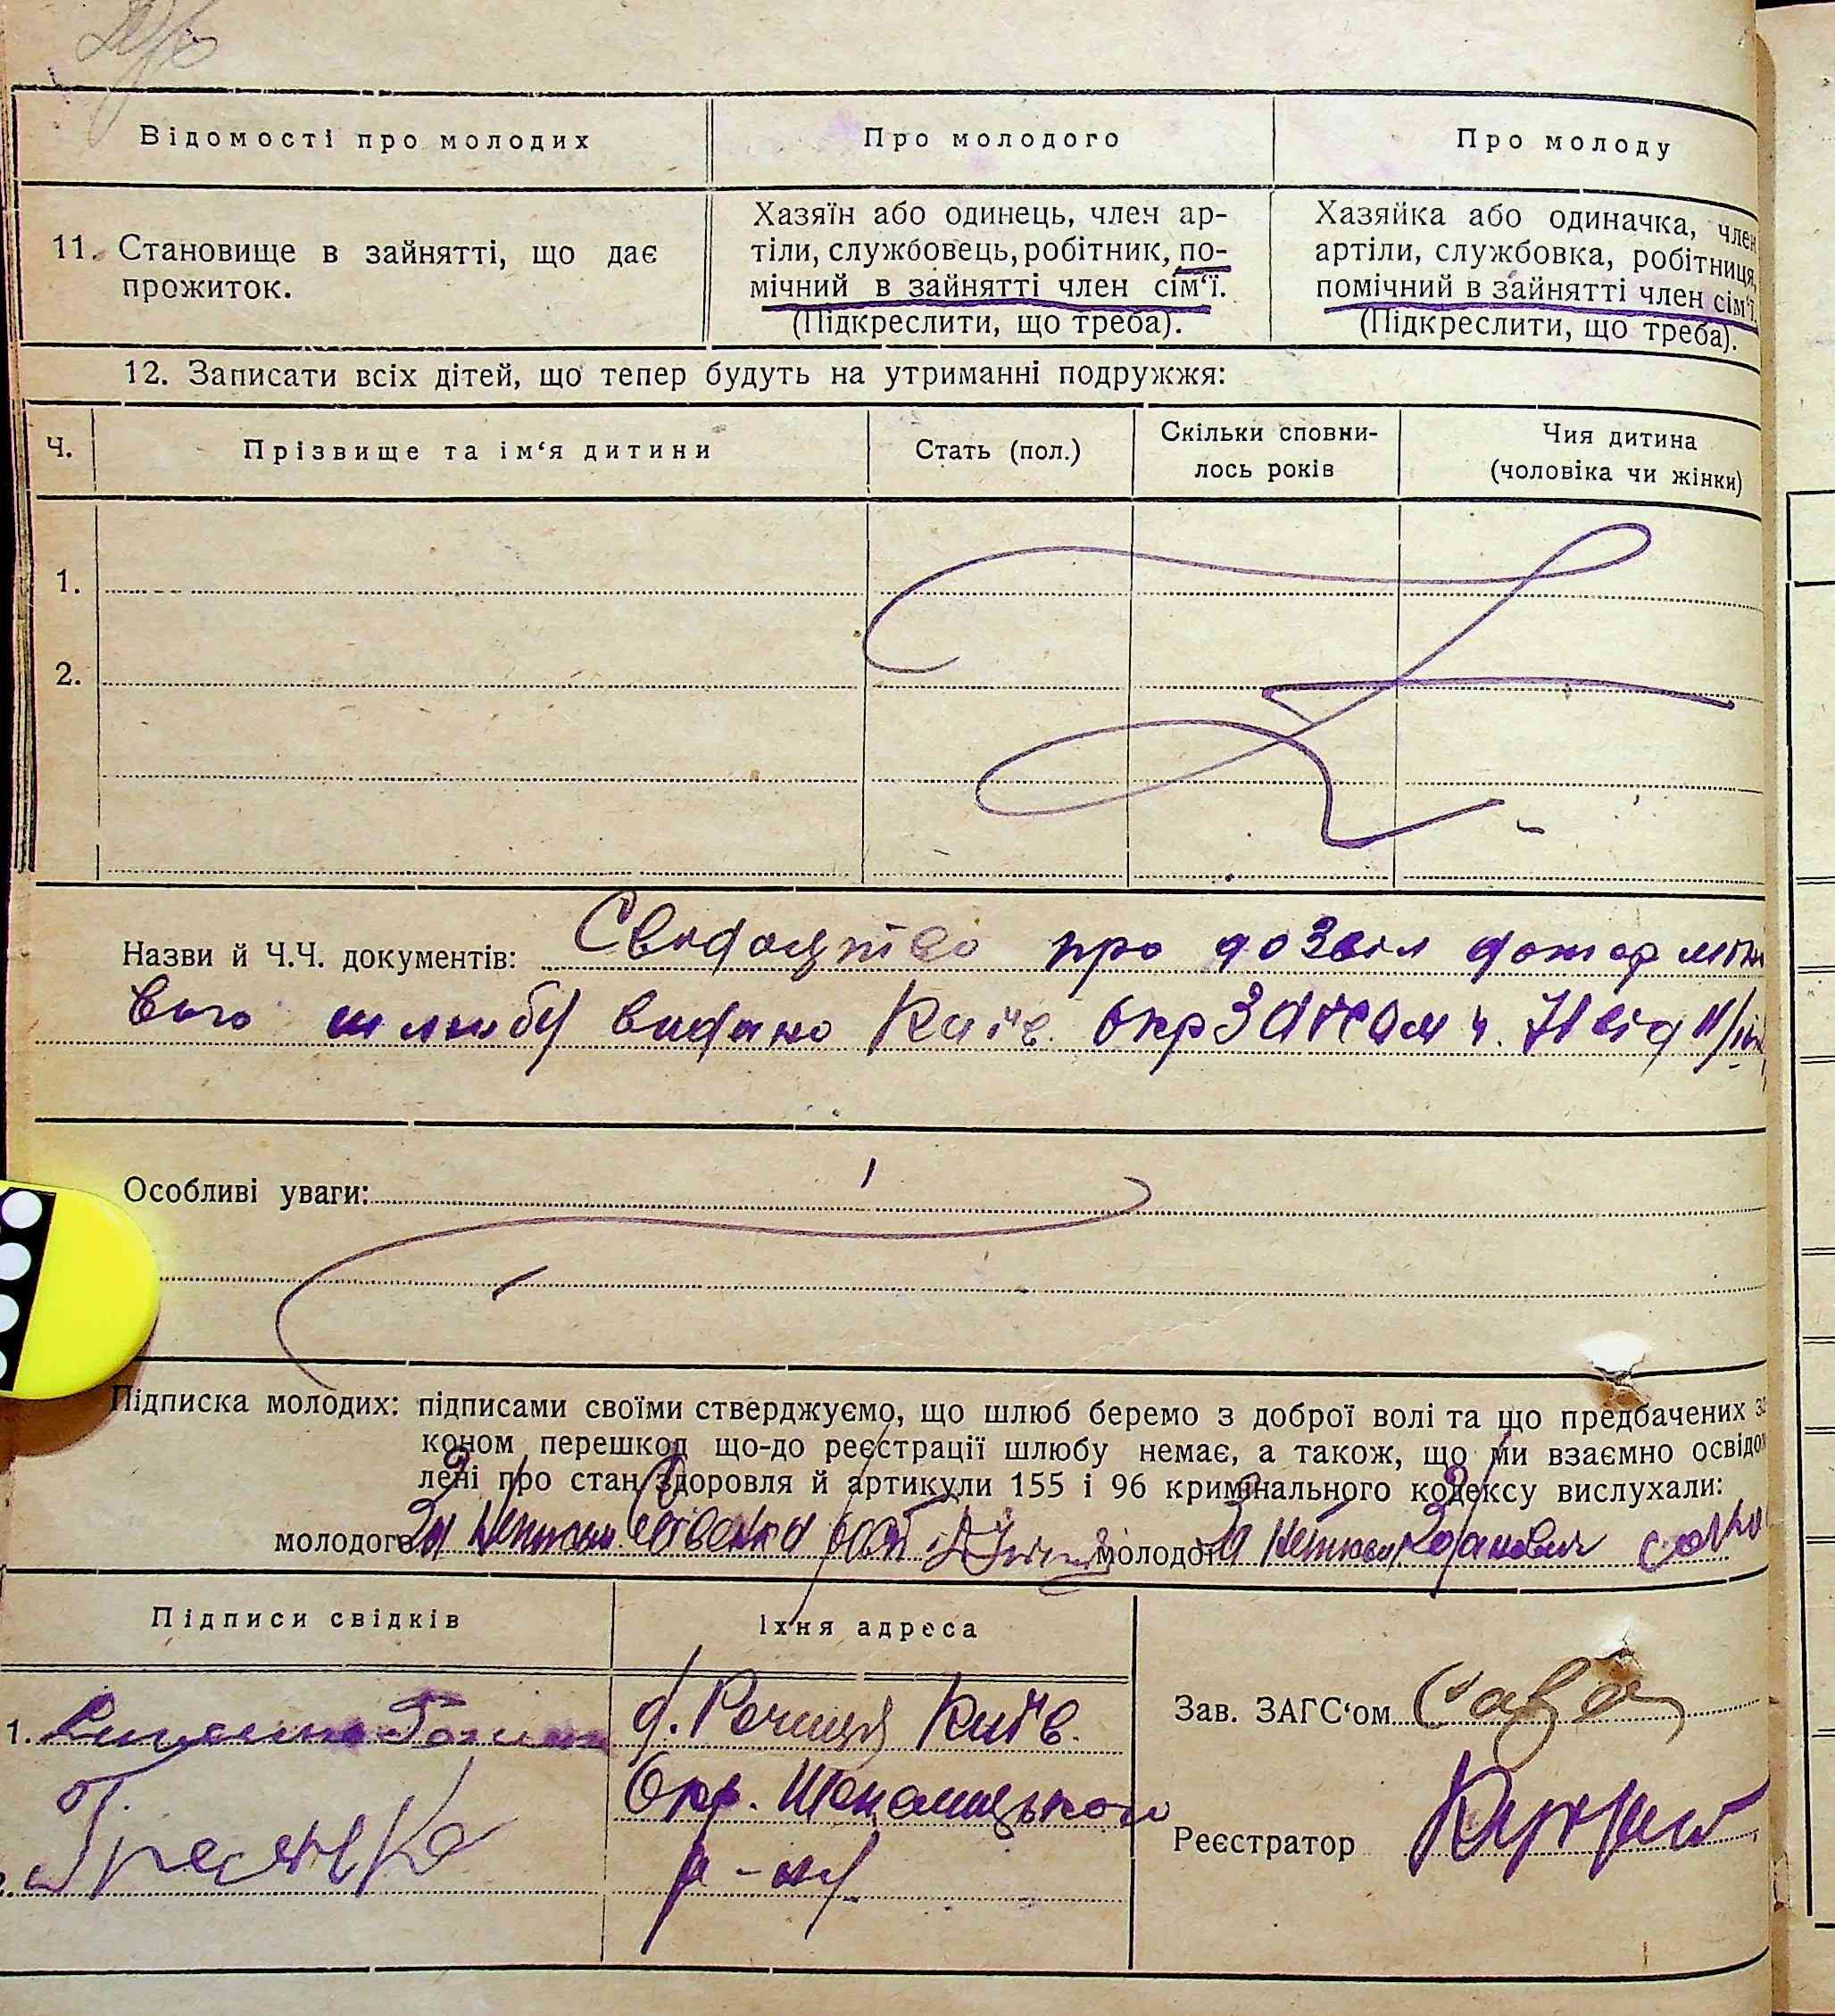 Відомості про молодих
Про молодого
Про молоду
11. Становище в зайнятті, що дає
прожиток.
Хазяїн або одинець, член ар-
тіли, службовець, робітник, по-
мічний в зайнятті член сім'ї.
(Підкреслити, що треба).
Хазяйка або одиначка, член
артіли, службовка, робітниця,
помічний в зайнятті член сім'ї.
(Підкреслити, що треба).
12. Записати всіх дітей, що тепер будуть на утриманні подружжя:
Ч.
Прізвище та ім'я дитини
Стать (пол.)
Скільки сповни-
лось років
Чия дитина
(чоловіка чи жінки)
1.
2.
Назви й Ч.Ч. документів: Свидоцтво про дозвіл
вого шлюбу видано Київ. Окр ЗАГСом ч. 71 від
Особливі уваги:
Підписка молодих: підписами своїми стверджуємо, що шлюб беремо з доброї волі та що предбачених за
коном перешкод що-до реєстрації шлюбу немає, а також, що ми взаємно освідом
лені про стан здоровля й артикули 155 і 96 кримінального кодексу вислухали:
молодого За молодої За
Підписи свідків
Їхня адреса
1.
с. Рочиця Київ.
Окр.
р-ну
Зав. ЗАГС'ом Сава
Реєстратор